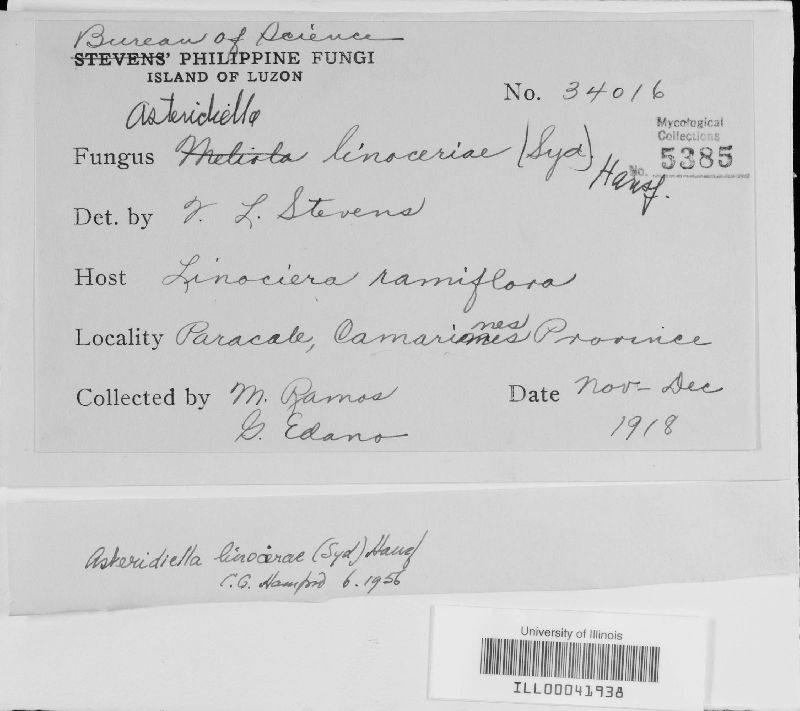 Bureau of Science
STEVENS' PHILIPPINE FUNGI
ISLAND OF LUZON
No. 34016
Asteridiella
Mycological
Collections
No. 5385
Fungus Meliola linoceriae (Syd). Hansf.
Det. by F. L. Stevens
Host Linociera ramiflora
Locality Paracale, Camarines Province
Collected by M. Ramos
G. Edano
Date Nov-Dec
1918
Asteridiella linocierae (Syd) Hansf
C.G. Hansford 6.1956
University of Illinois
ILL00041938